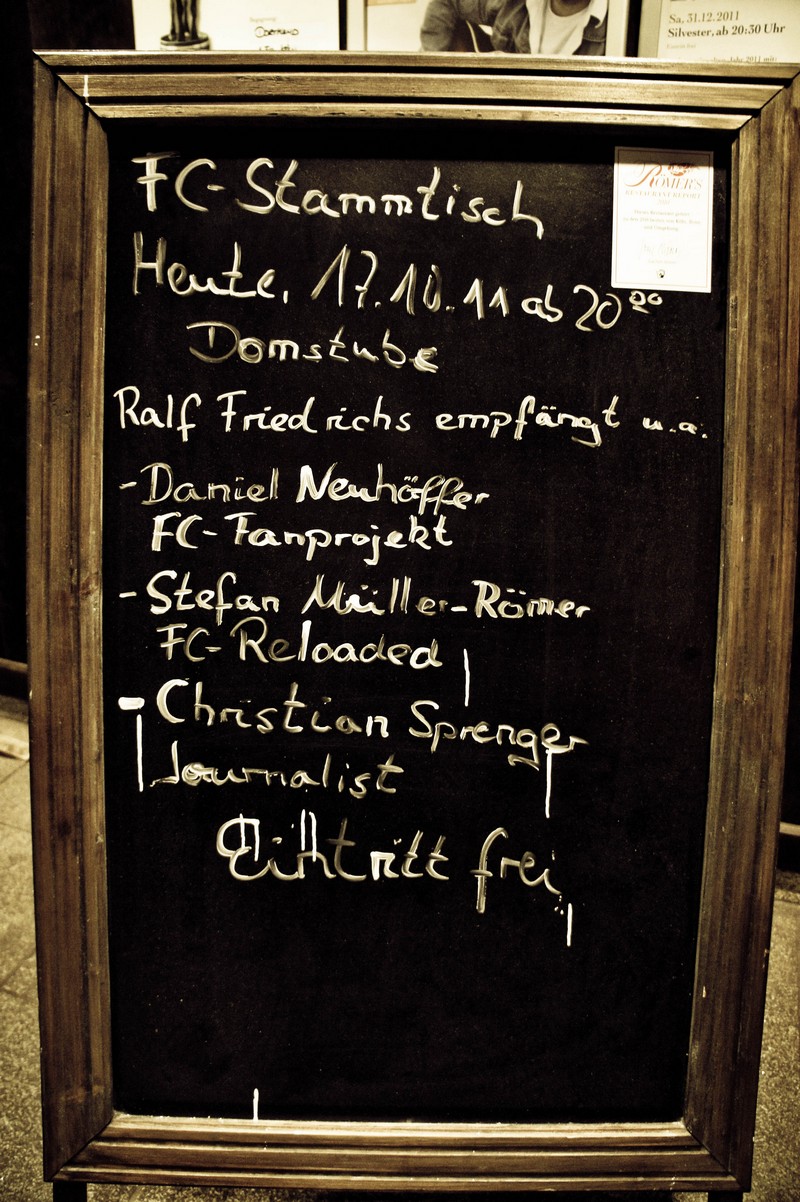 Sa, 31.12.2011
Silvester, ab 20:30 Uhr
RÖMER'S
RESTAURANT REPORT
FC-Stammtisch
Heute, 17.10.11 ab 20⁰⁰
Domstube
Ralf Friedrichs empfängt u.a.
- Daniel Neuhöffer
FC-Fanprojekt
- Stefan Müller-Römer
FC-Reloaded
- Christian Sprenger
Journalist
Eintritt frei